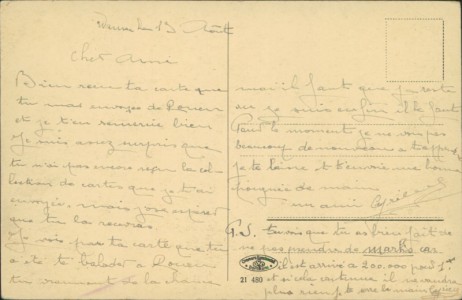 le 13 Août
Cher Ami
Bien reçu ta carte que
tu m'as envoyée de Rouen
et je t'en remercie bien
Je suis assez surpris que
tu n'ai pas encore reçu la col
lection de cartes que je t'ai
envoyé, mais j'ose espérer
que tu la recevras
Je vois par ta carte que tu
a été te balader à Rouen
tu vraiment de la chance
moi il faut que je reste
au je suis enfin il le faut
Pour le moment je ne vois pas
beaucoup de nouveau a t'app
je te laisse et t'envoie une bonne
poignée de main
un ami
P.S. Tu vois que tu as bien fait de
ne pas prendre de marks car
il est arrivé à 200.000 pour 1
et si cela continue il ne vaudra
plus rien
21 480